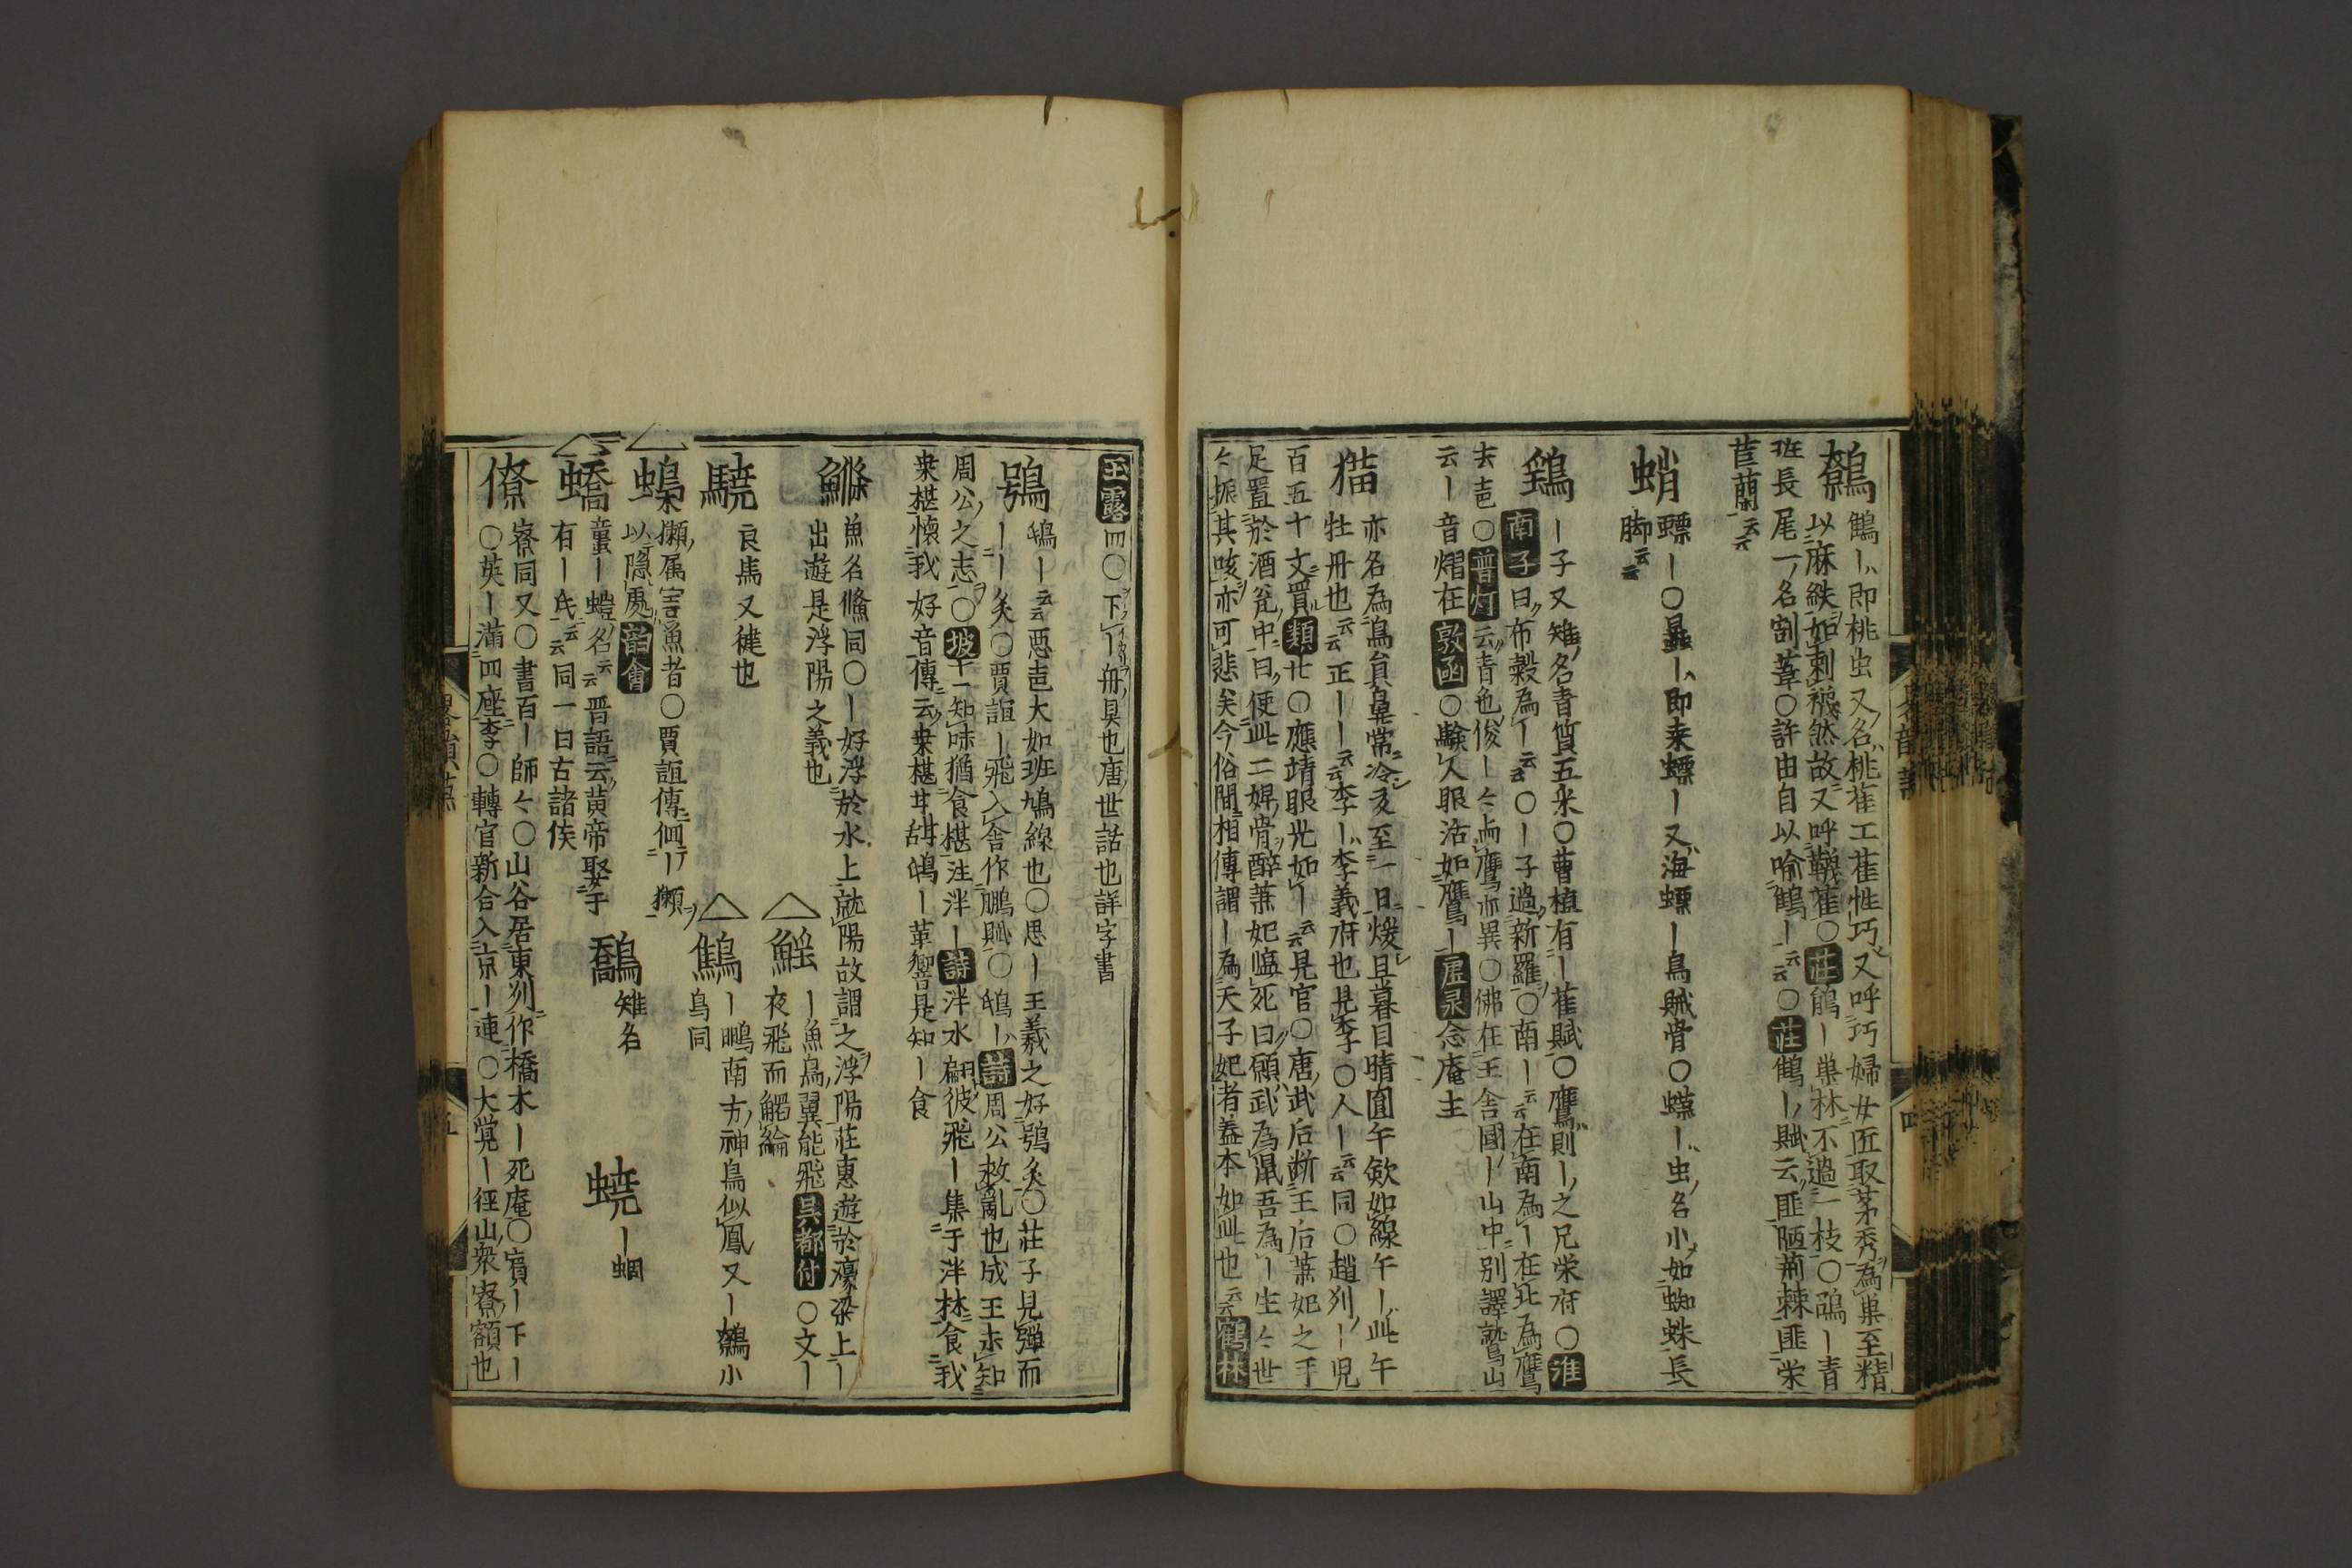 鷦
鷯丨即桃虫又名桃雀工雀性巧又呼巧婦女匠取茅秀為巢至精
以麻紩如刺襪然故又呼韈雀〇莊鷦丨巢林不過一枝〇鷦丨青
班長尾一名割葦〇許由自以喩鷦丨云云〇莊鷦丨賦云匪陋荊棘匪栄
茝蘭云云
蛸
螵丨〇
丨即来螵丨又海螵丨烏賊骨〇蟏丨虫名小如蜘蛛長
脚云云
鷂
丨子又雉名青質五采〇曹植有丨雀賦〇鷹則丨之兄栄府〇淮
南子曰布穀為丨云云〇丨子過新羅〇南丨云云在南為丨在北為鷹
去声〇普灯云青也俊丨
鷹亦異〇佛在王舎国丨山中別譯鷲山
云丨音熠在敦函〇驗人眼活如鷹丨虚录念庵主
猫
亦名為烏員鼻常冷夏至一日煖且暮目睛圓午斂如線午丨此午
牡丹也云云正丨丨云云李丨李義府也見李〇人丨云云同〇趙列丨児
百五十文買類廿〇應靖眼光如丨云云見官〇唐武后断王后葉妃之手
足置於酒瓮中曰使此二婢骨醉葉妃臨死曰願武為鼠吾為丨生々世
々扼其咳亦可悲矣今俗間相傳謂丨為天子妃者益本如此也云云鶴林
玉露四〇下丨冊具也唐世話也詳字書
鴞
鴟丨云云悪声大如班鳩緑也〇思丨王羲之好鴞炙〇莊子見弾而
丨丨炙〇賈誼丨飛入舎作鵬賦〇鴟丨詩周公救亂也成王未知
周公之志〇坡
一知味猶食椹注泮丨詩泮水翩彼飛丨集于泮林食我
桒椹懐我好音傳云桒椹甘甜鴟丨革響是知丨食
鰷
魚名鯈同〇丨好浮於水上就陽故謂之浮陽莊恵遊於濠梁上丨
出遊是浮陽之義也
鰩
丨魚鳥翼能飛呉都付〇文丨
夜飛而觸綸
驍
良馬又健也
鷦
丨鵬南方神鳥似鳳又丨鷯小
鳥同
獺属害魚者〇賈誼傳偭丨獺
以隠處韻會
鷮
雉名
蟜
蚕丨螘名云云晋語云黄帝娶于
有丨氏云云同一曰古諸侯
蟯
丨蛔
僚
寮同又〇書百丨師々〇山谷居東列作橋木丨死庵〇賓丨下丨
〇英丨滿四座李〇轉官新合入京丨連〇大覚丨径山衆寮額也
四
五